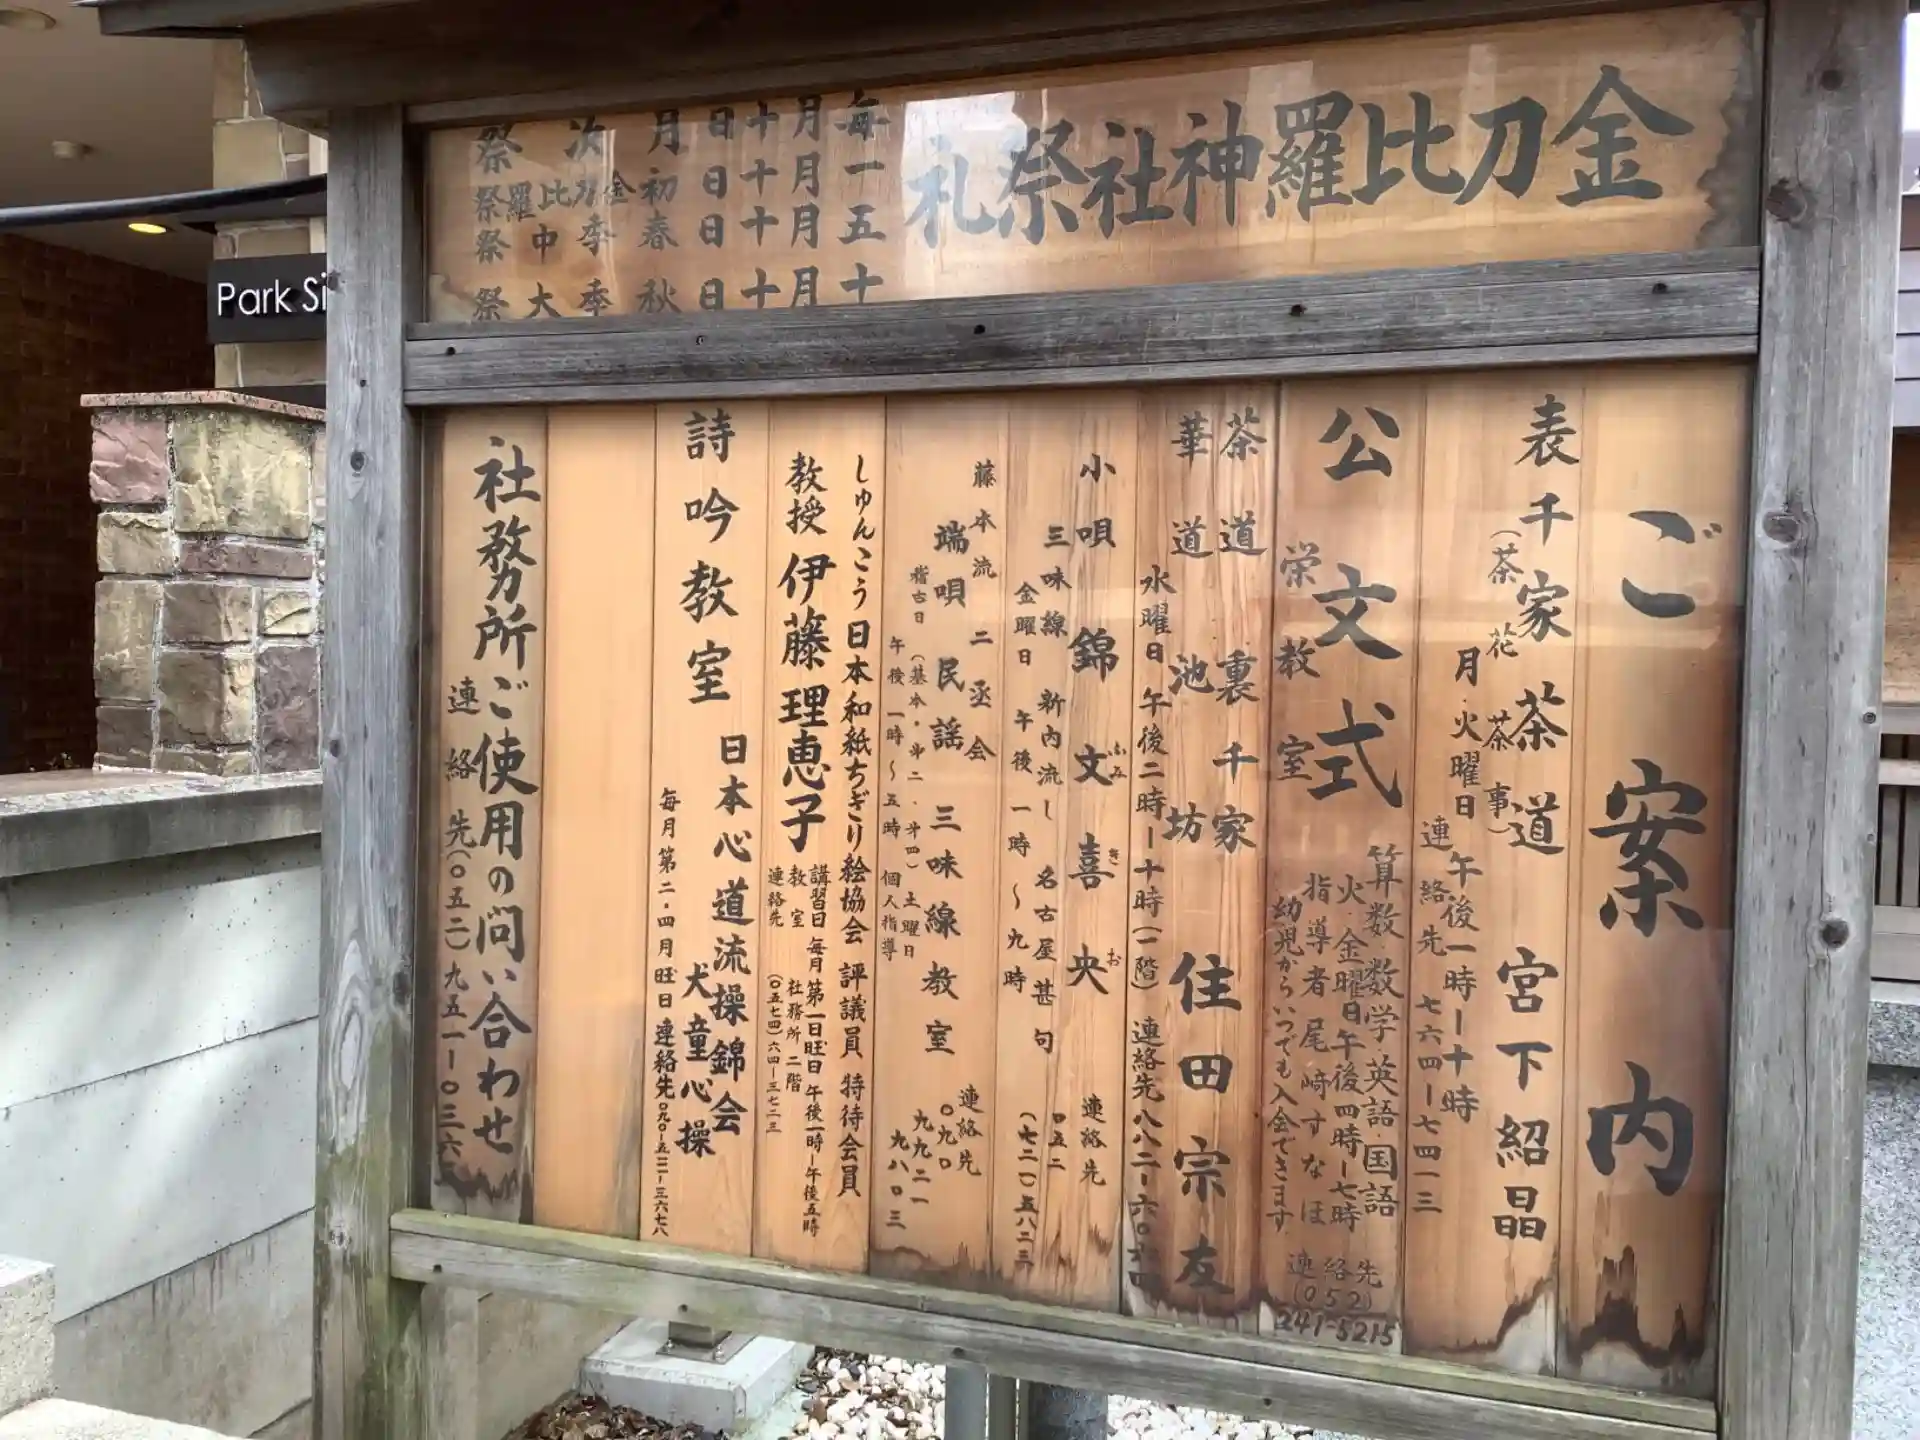 金刀比羅神社祭礼
毎月十日 月次祭
一月十日 初金刀比羅祭
五月十日 春季中祭
十月十日 秋季大祭
ご案内
表千家茶道 宮下紹晶
(茶花・茶事)
月・火曜日 午後一時ー十時
連絡先 七六四ー七四一三
公文式
栄教室
算数・数学・英語・国語
火・金曜日午後四時ー七時
指導者 尾崎すなほ
幼児からいつでも入会できます
連絡先
(052)
241-5215
茶道 裏千家
華道 池坊
住田宗友
水曜日 午後二時ー十時(一階) 連絡先 八八二ー六〇六四
小唄 錦文喜央
ふみ き お
三味線 新内流し 名古屋甚句
金曜日 午後一時〜九時
連絡先
〇五二
(七二一)五八二三
藤本流 二丞会
端唄 民謡 三味線教室
稽古日 (基本・第二・第四)土曜日
午後一時〜五時 個人指導
連絡先
〇九〇
九九二一
九八〇三
しゅんこう日本和紙ちぎり絵協会 評議員 特待会員
教授 伊藤理恵子
講習日 毎月第一日曜日 午後一時ー午後五時
教室 社務所 二階
連絡先 (〇五七四)六四ー三七二三
詩吟教室
日本心道流操錦会
犬童心操
毎月第二・四月曜日 連絡先
社務所ご使用の問い合わせ
連絡先(〇五二)九五一ー〇三六
Park Si